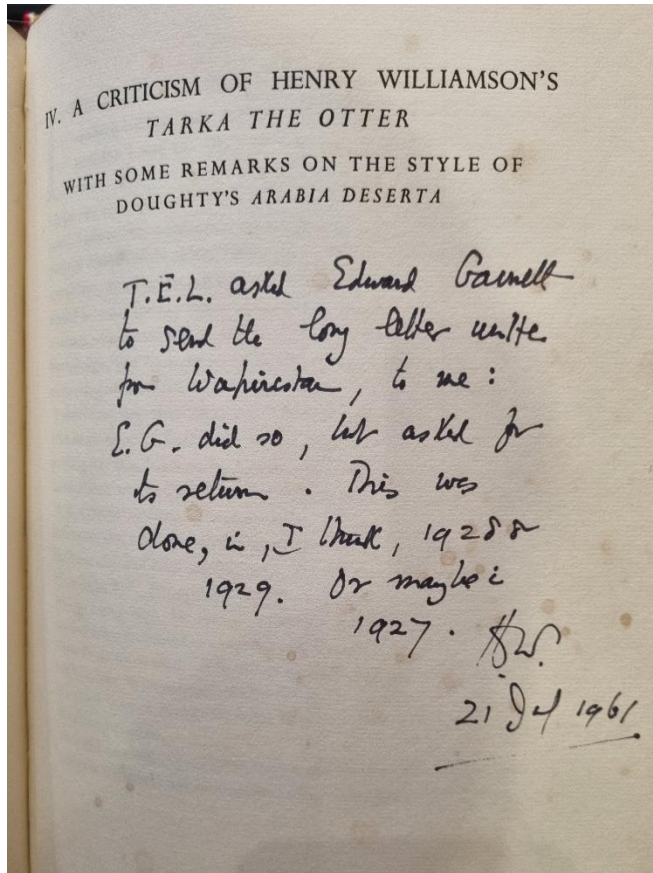 IV. A CRITICISM OF HENRY WILLIAMSON'S
TARKA THE OTTER
WITH SOME REMARKS ON THE STYLE OF
DOUGHTY'S ARABIA DESERTA
T.E.L. asked Edward Garnett
to send the long letter written
from Waziristan, to me:
E.G. did so, but asked for
its return. This was
done, in, I think, 1928 or
1929. Or maybe in
1927. HW.
21 Jul 1961